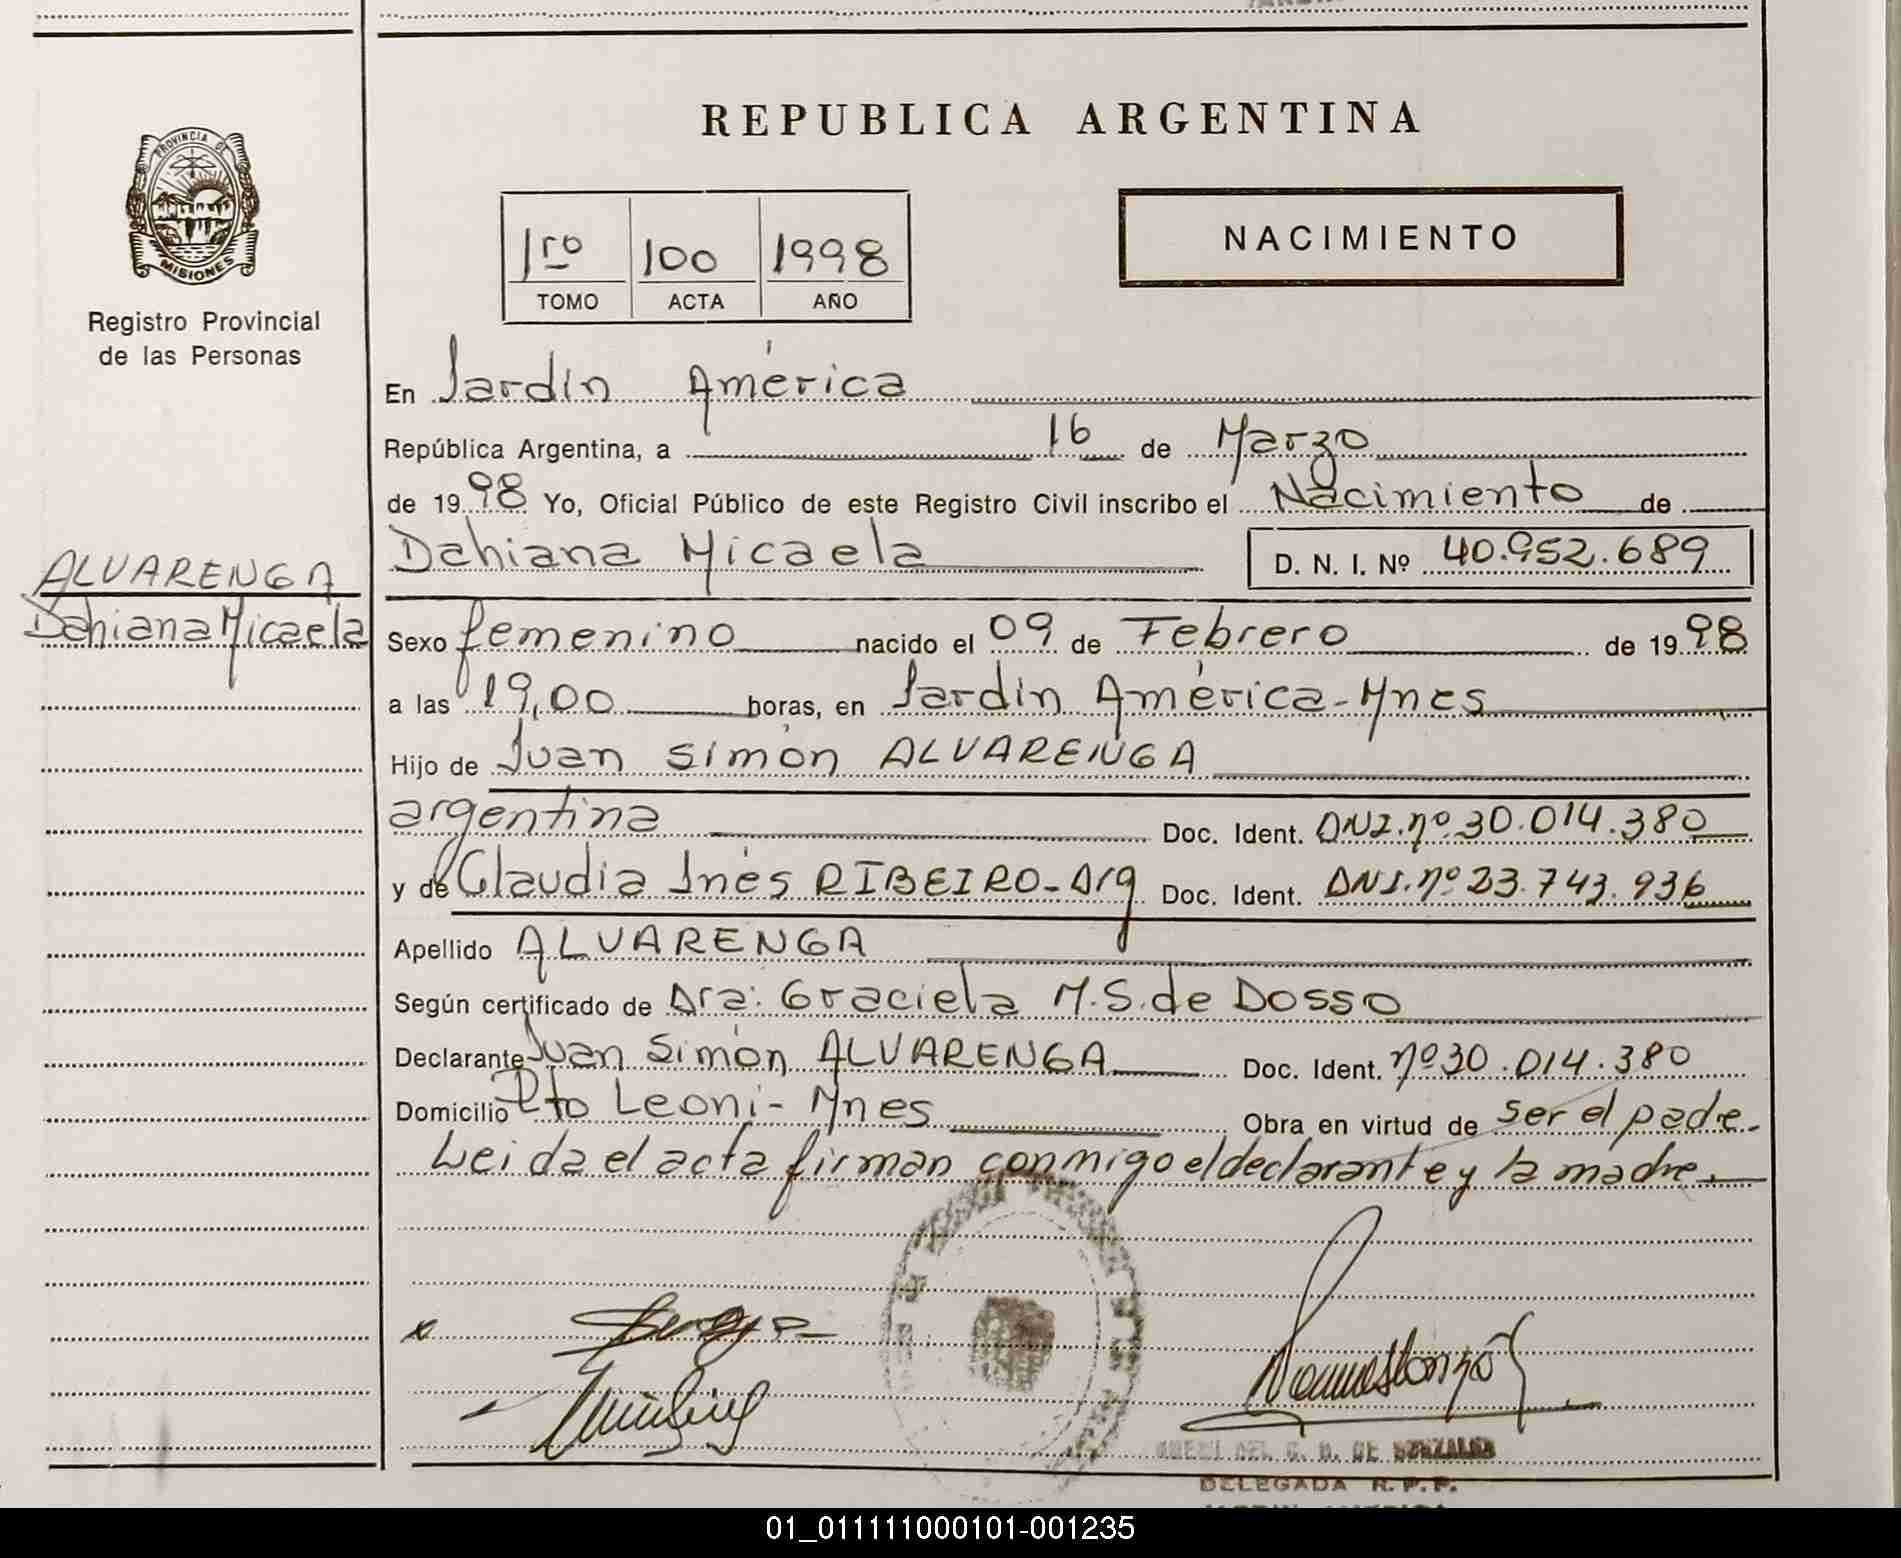 REPUBLICA ARGENTINA
PROVINCIA DE
MISIONES
Registro Provincial
de las Personas
1ro 100 1998
TOMO ACTA AÑO
NACIMIENTO
En Jardín América
República Argentina, a 16 de Marzo
de 1998 Yo, Oficial Público de este Registro Civil inscribo el Nacimiento de
Dahiana Micaela D. N. I. Nº 40.952.689
ALVARENGA
Dahiana Micaela
Sexo femenino nacido el 09 de Febrero de 1998
a las 19,00 horas, en Jardín América-Mnes
Hijo de Juan Simón ALVARENGA
argentina Doc. Ident. DNI.nº 30.014.380
y de Claudia Inés RIBEIRO-Arg Doc. Ident. DNI.nº 23.743.936
Apellido ALVARENGA
Según certificado de Dra: Graciela M.S. de Dosso
Declarante Juan Simón ALVARENGA Doc. Ident. nº 30.014.380
Domicilio Pto Leoni-Mnes Obra en virtud de ser el padre.
Leida el acta firman conmigo el declarante y la madre.
DEL C. D. DE
DELEGADA R. P. P.
01_011111000101-001235